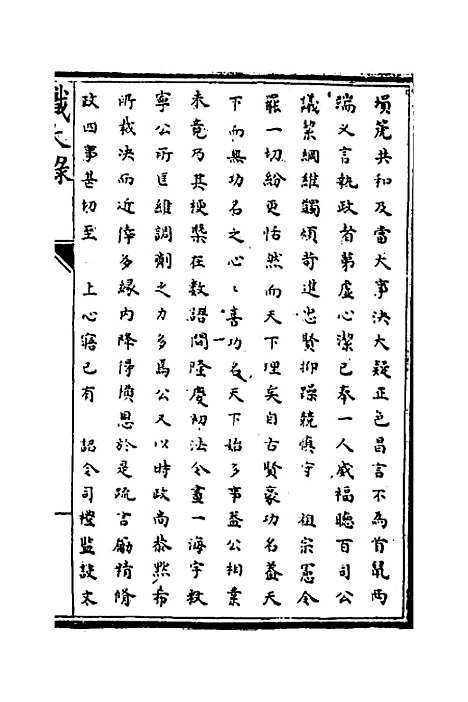 塤箎共和及當大事決大疑正色昌言不為首鼠兩
端又言執政者第虛心潔己奉一人威福聽百司公
議絜綱維蠲煩苛進忠賢抑躁競慎守　祖宗憲令
罷一切紛更恬然而天下理矣自古賢豪功名蓋天
下而無功名之心〻喜功名天下始多事蓋公相業
未竟乃其梗槩在數語間隆慶初法令畫一海宇敉
寧公所匡維調劑之力多焉公又以時政尚恭默希
所裁決而近倖多緣内降得憤恩於是疏言勵精脩
政四事甚切至　上心寤已有　詔令司禮監設文
獻文錄